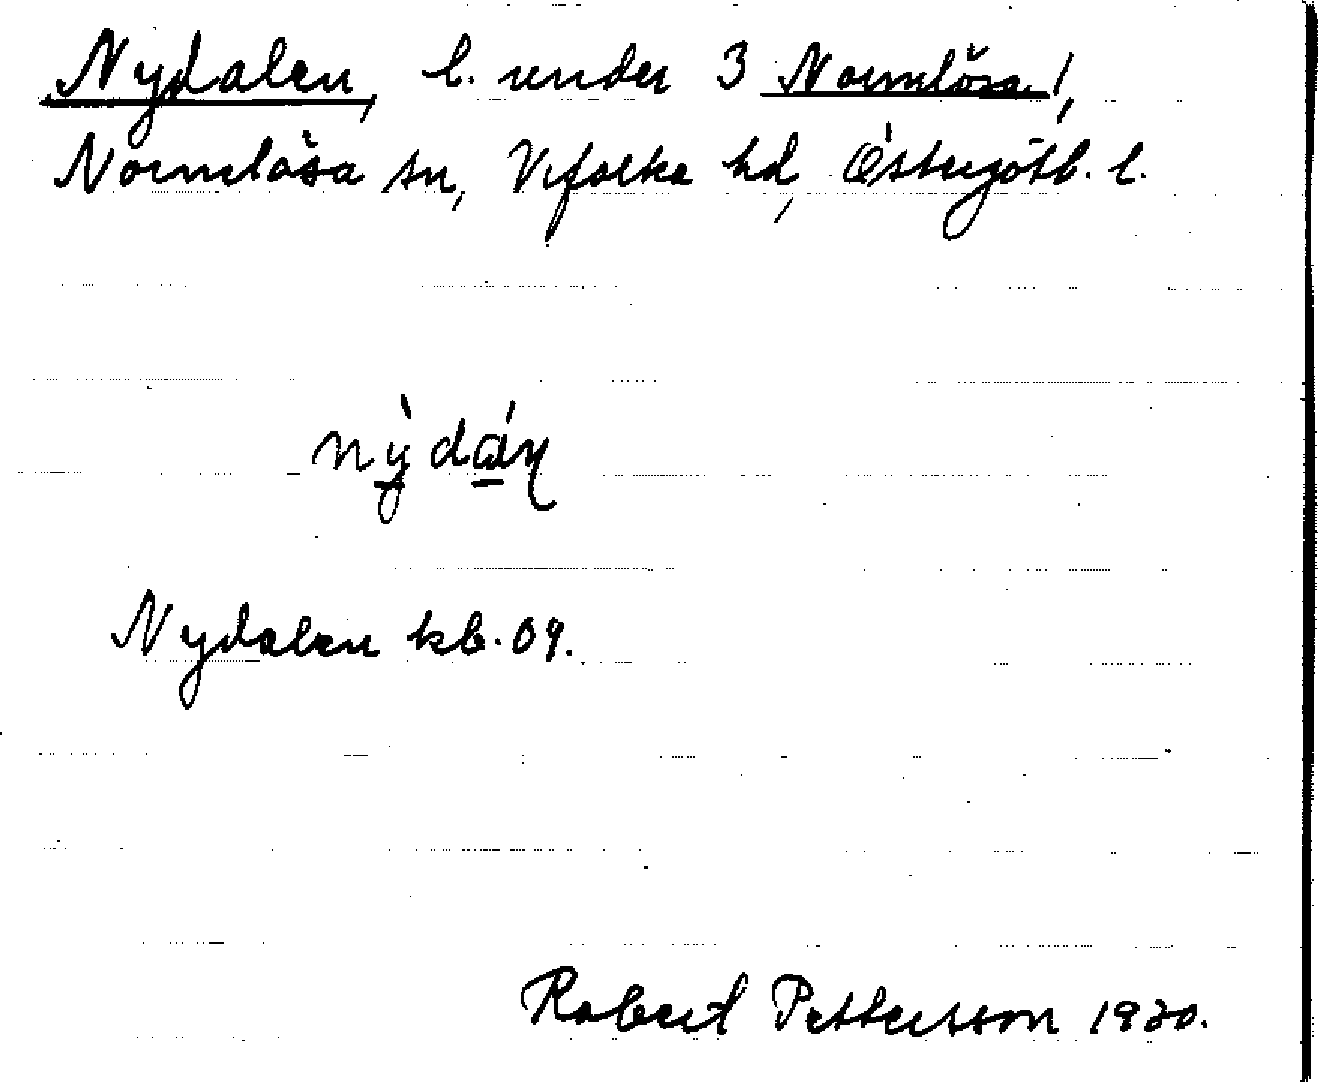 Nydalen, l. under 3 Normlösa /,
Normlösa sn, Vifolka hd, Östergötl. l.
nỳdáņ
Nydalen kb. 09.
Robert Pettersson 1930.